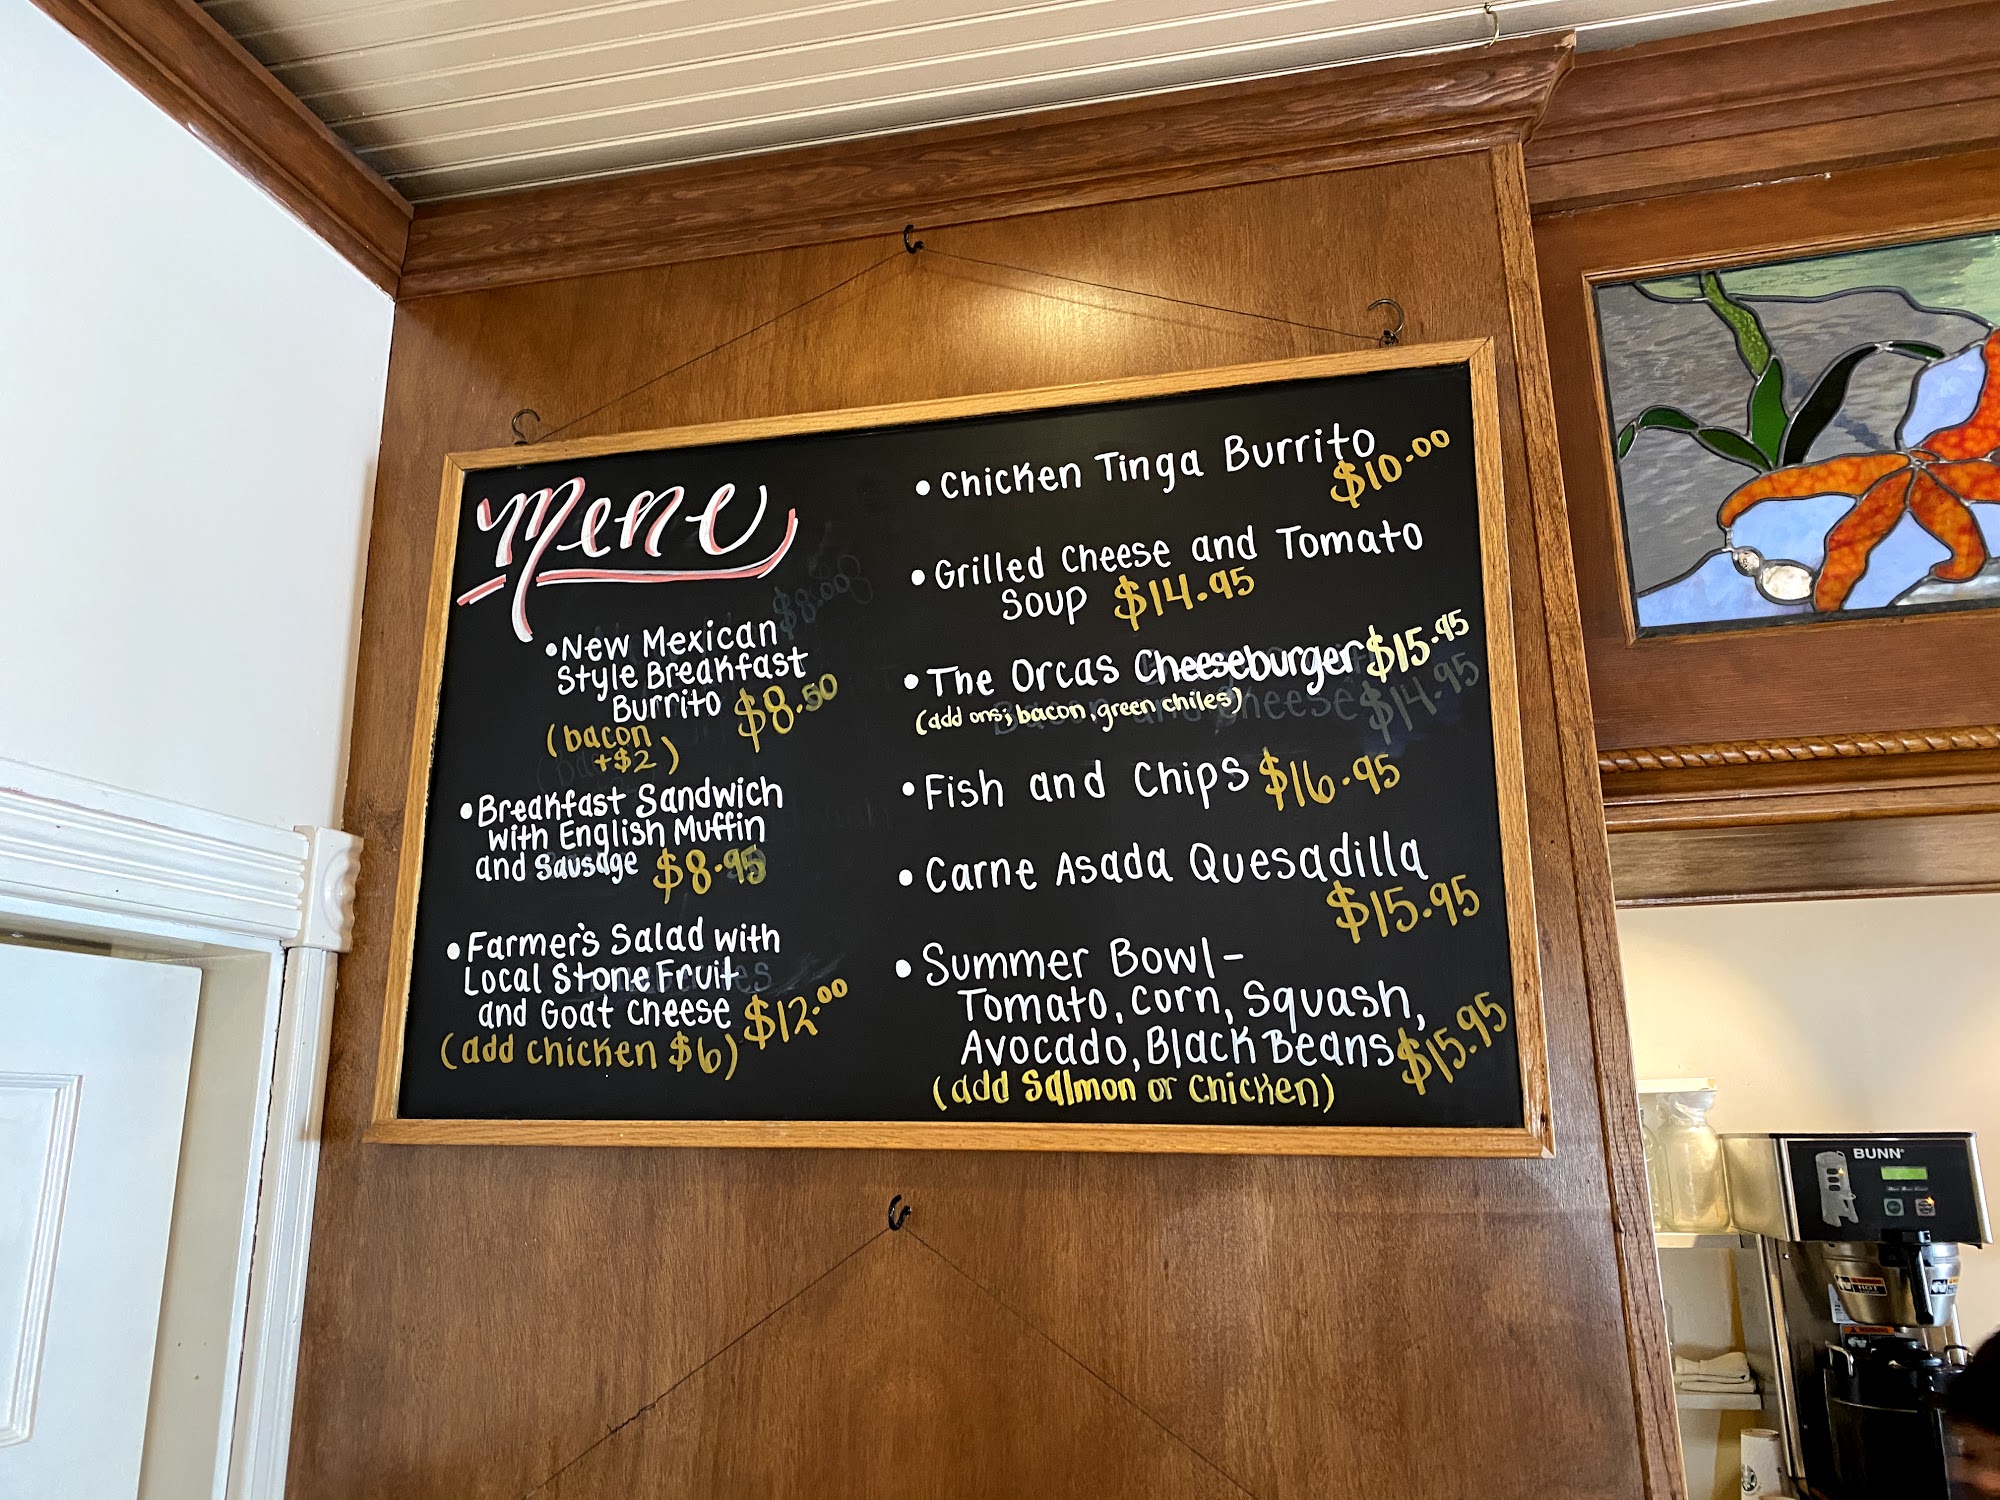 Menu
•New Mexican
Style Breakfast
Burrito $8.50
(bacon
+$2)
•Breakfast Sandwich
with English Muffin
and Sausage $8.95
•Farmer's Salad with
Local Stone Fruit
and Goat Cheese $12.00
(add chicken $6)
•Chicken Tinga Burrito
$10.00
•Grilled Cheese and Tomato
Soup $14.95
•The Orcas Cheeseburger $15.95
(add ons; bacon, green chiles)
•Fish and Chips $16.95
•Carne Asada Quesadilla
$15.95
•Summer Bowl-
Tomato, Corn, Squash,
Avocado, Black Beans $15.95
(add Salmon or Chicken)
BUNN
HOT